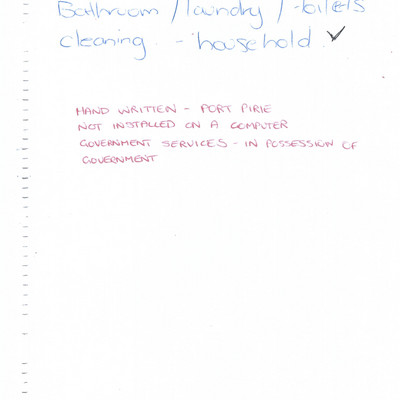 Bathroom / laundry / toilets
cleaning - household ✓
HAND WRITTEN - PORT PIRIE
NOT INSTALLED ON A COMPUTER
GOVERNMENT SERVICES - IN POSSESSION OF
GOVERNMENT